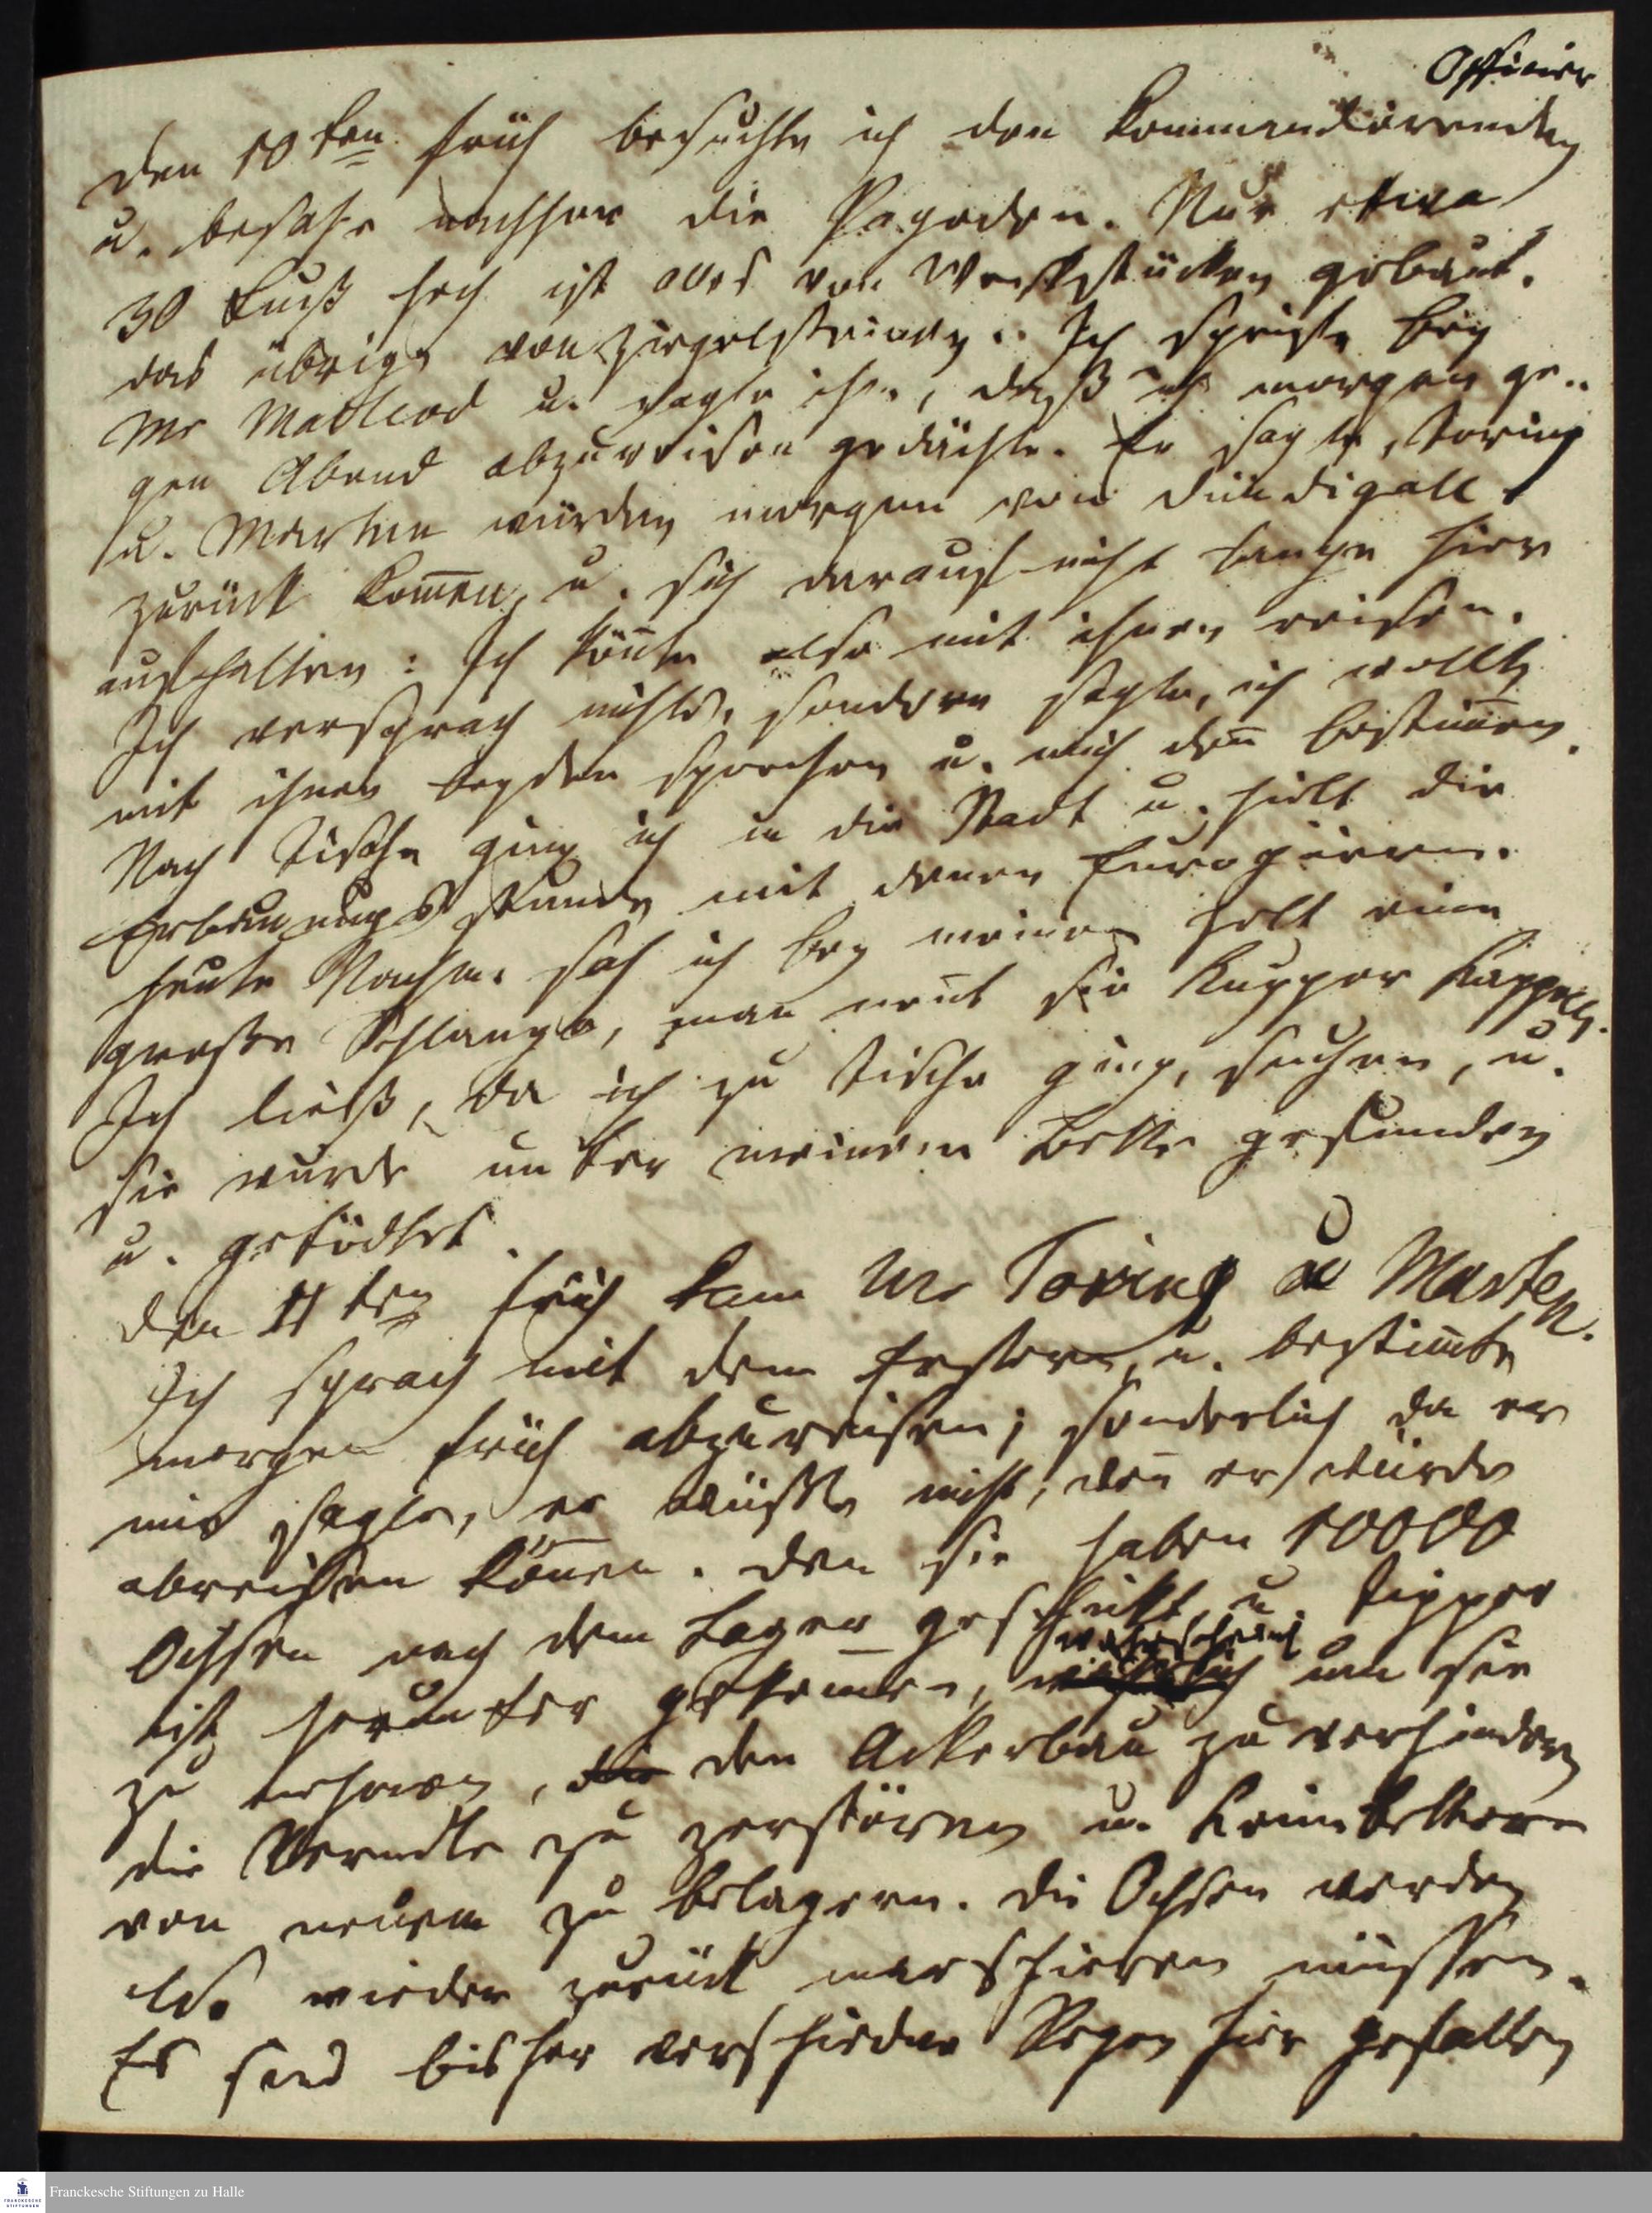 Officier
Den 10ten früh besuchte ich den Commandirenden
u. besahe nachher die Pagoden. Nur etwa
30 Fuß hoch ist alles von Werkstücken gebaut.
das übrige von Ziegelsteinen. Ich speiste bey
Mr Macleod u. sagte ihm, daß ich morgen ge-
gen Abend abzureisen gedächte. Er sagte, Toring
u. Martin würden morgen von Dindigall
zurück kom̄en, u. sich darauf nicht lange hier
aufhalten: Ich kön̄te also mit ihnen reisen.
Ich versprach nichts, sondern sagte, ich wollte
mit ihnen beyden sprechen u. mich den̄ bestim̄en.
Nach Tische ging ich in die Stadt u. hielt die
Erbauungs Stunde mit denen Europäern.
Heute Nachm. sah ich bey meinem Zelt eine
große Schlange, man nen̄t sie Kupper Kappell.
Ich ließ, da ich zu Tische ging, suchen, u.
sie wurde unter meinem Bette gefunden
u. getödtet.
Den 11ten früh kam Mr Toring u Marten.
Ich sprach mit dem Erstern, u. bestim̄te
morgen früh abzureisen; sonderlich da er
mir sagte, er wüßte nicht, wen̄ er würde
abreisen kön̄en. Den sie haben 10000
Ochsen nach dem Lager geschickt, u. Tippos
ist herunter gekom̄en, wahrscheinlich um sie
zu nehmen, die den Ackerbau zu verhindern
die Aerndte zu zerstören u. Coimbettore
von neuem zu belagern. Die Ochsen werden
also wieder zurück marschieren müssen.
Es sind bisher verschiedene Regen hier gefallen
Franckesche Stiftungen zu Halle
FRANCKESCHE STIFTUNGEN